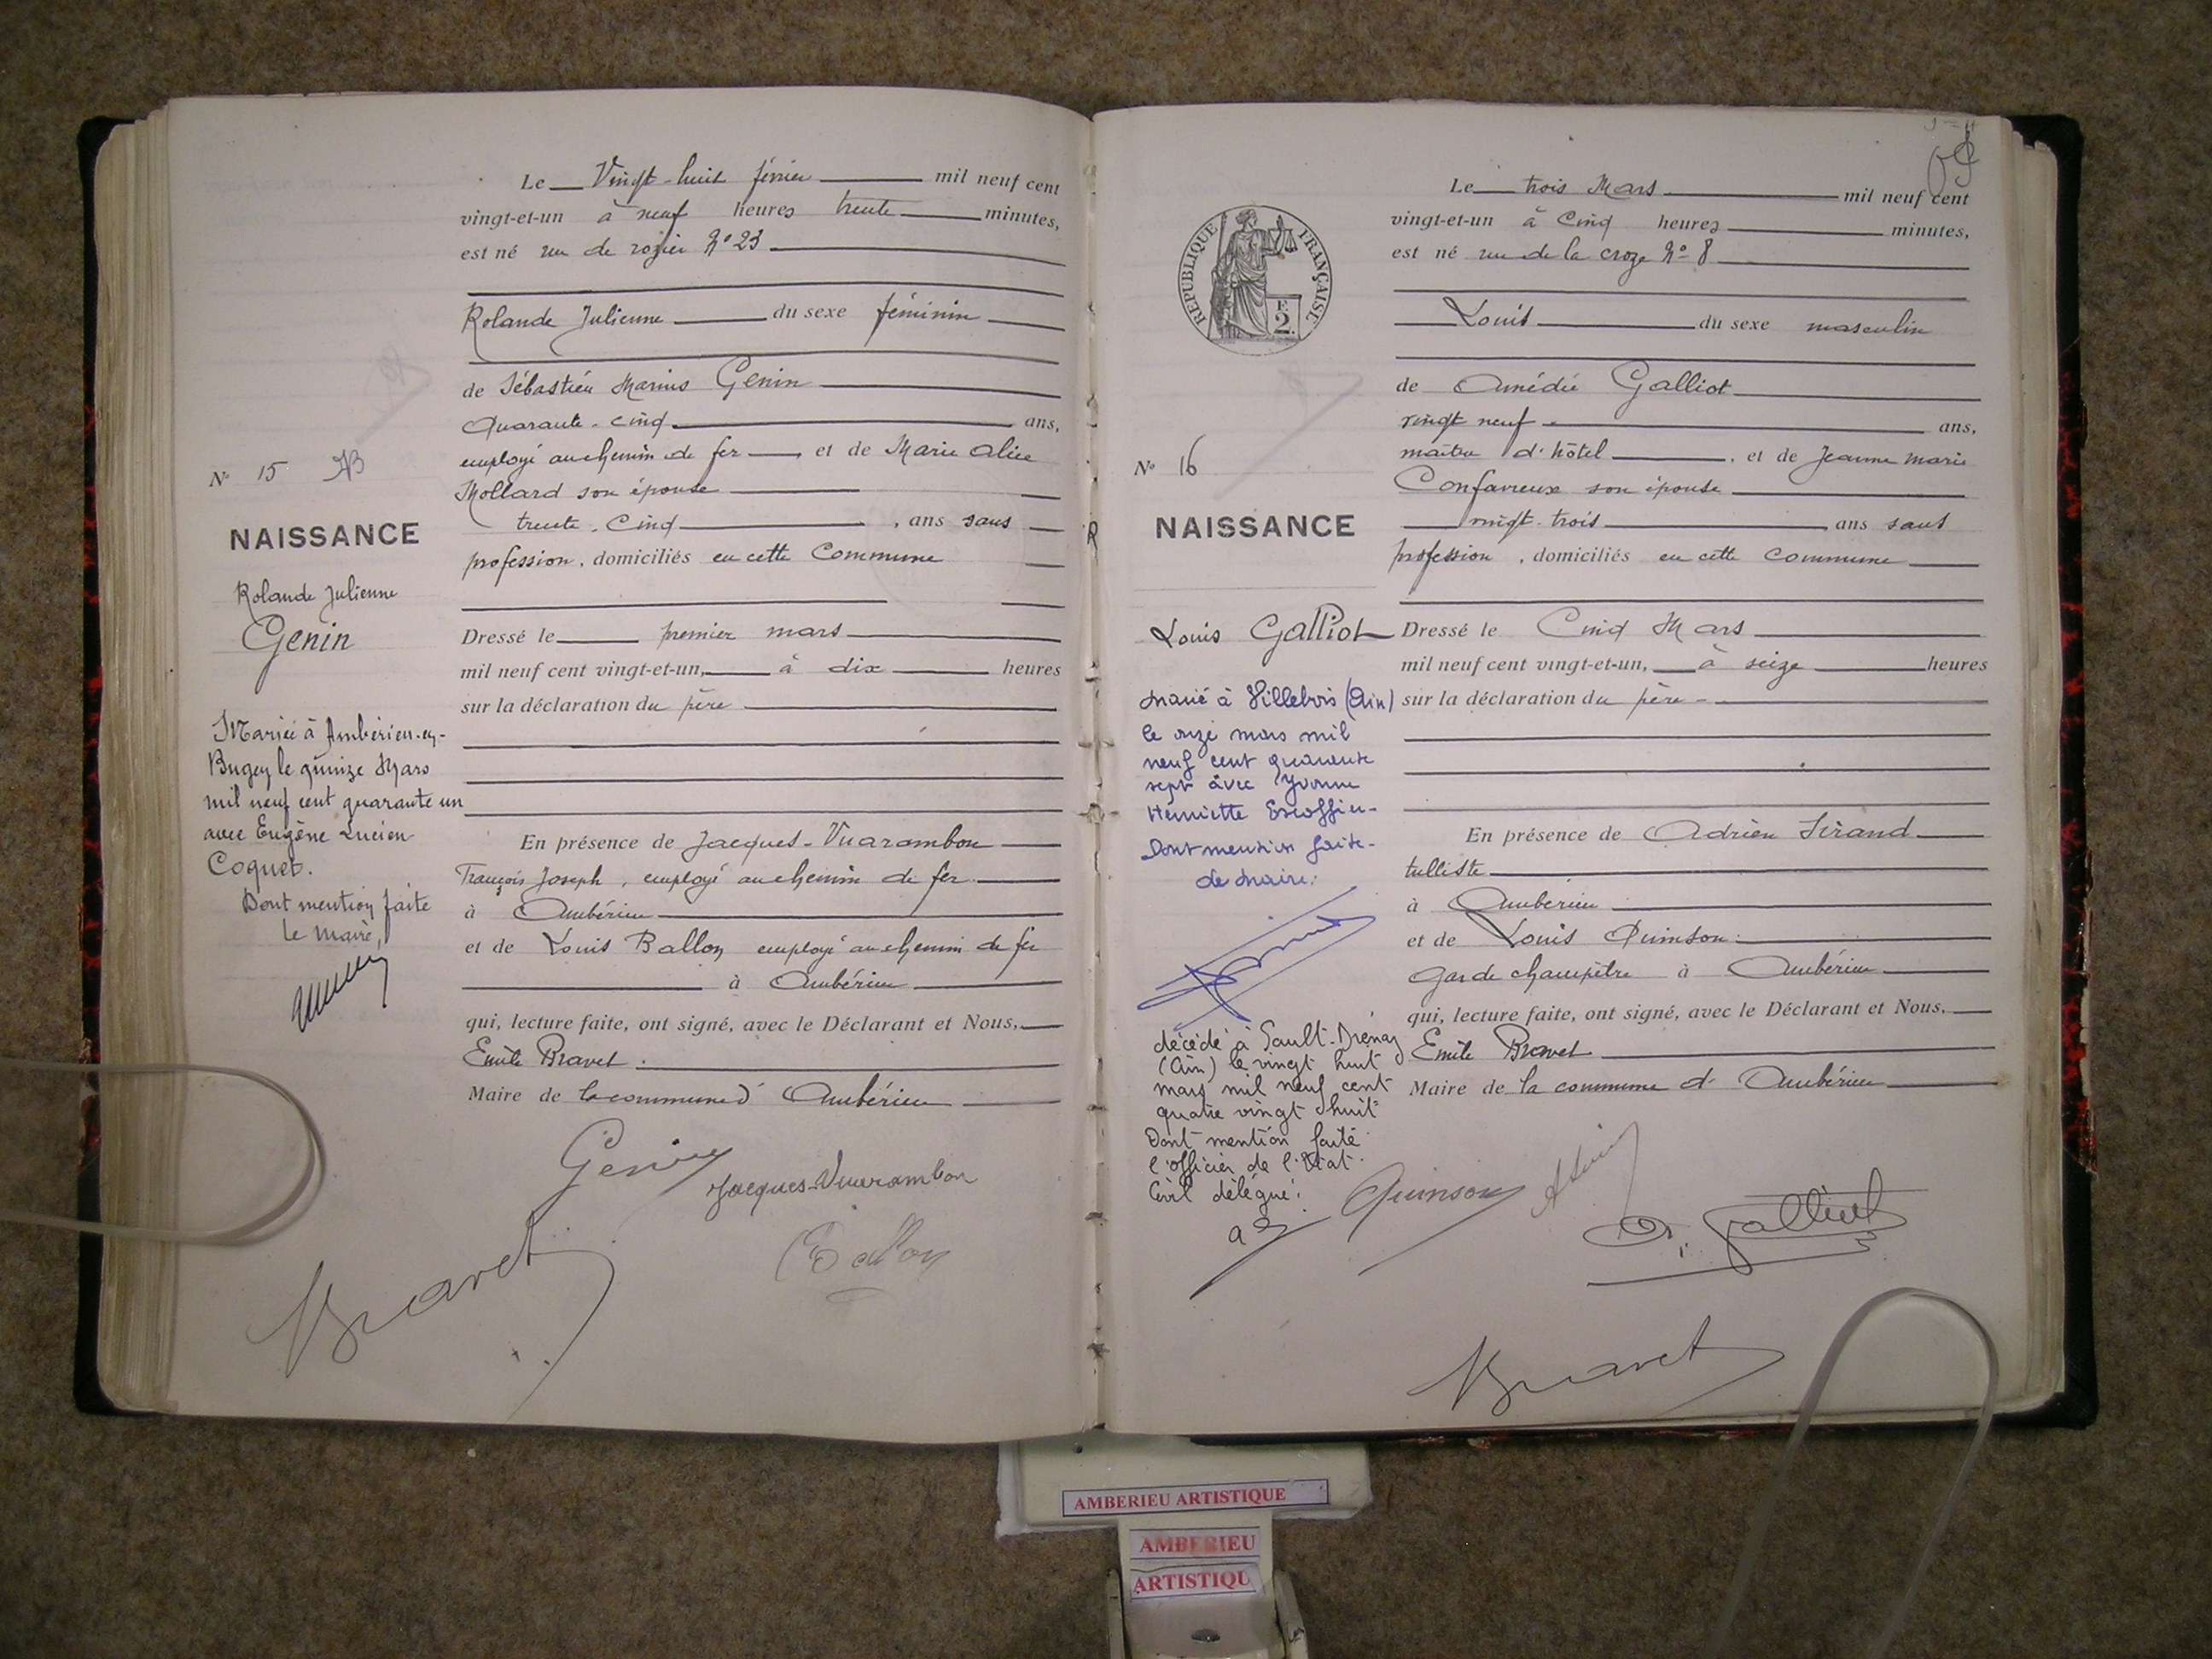 Le Vingt-huit février mil neuf cent
vingt-et-un à neuf heures trente minutes,
est né rue de rozier N° 23
Rolande Julienne du sexe féminin
de Sébastien Marius Genin
Quarante-cinq ans,
employé au chemin de fer et de Marie Alice
Mollard son épouse
trente-cinq, ans sans
profession, domiciliés en cette Commune
Dressé le premier mars
mil neuf cent vingt-et-un, à dix heures
sur la déclaration du père
En présence de Jacques-Vuarambon
François Joseph, employé au chemin de fer
à Ambérieu
et de Louis Ballon employé au chemin de fer
à Ambérieu
qui, lecture faite, ont signé, avec le Déclarant et Nous,
Emile Bravet.
Maire de la commune d' Ambérieu
N° 15
NAISSANCE
Rolande Julienne
Genin
Mariée à Ambérieu-en-
Bugey le quinze Mars
mil neuf cent quarante un
avec Eugène Lucien
Coquet.
Dont mention faite
Le Maire,
Genin
Jacques-Vuarambon
Ballon
Bravet
Le trois Mars mil neuf cent
vingt-et-un à Cinq heures minutes,
est né rue de la croze N° 8
Louis du sexe masculin
de Amédée Galliot
vingt neuf ans,
maître d'hôtel, et de Jeanne Marie
Confavreux son épouse
vingt-trois ans sans
profession, domiciliés en cette commune
Dressé le Cinq Mars
mil neuf cent vingt-et-un, à seize heures
sur la déclaration du père
En présence de Adrien Sirand
tulliste
à Ambérieu
et de Louis Quinson
Garde champêtre à Ambérieu
qui, lecture faite, ont signé, avec le Déclarant et Nous,
Emile Bravet
Maire de la commune d' Ambérieu
REPUBLIQUE FRANÇAISE
E.
2
N° 16
NAISSANCE
Louis Galliot
Marié à Villebois (Ain)
le onze mars mil
neuf cent quarante
sept avec Yvonne
Henriette Escoffier-
Dont mention faite-
Le Maire:
décédé à Sault-Brénaz
(Ain) le vingt huit
mars mil neuf cent
quatre vingt huit
Dont mention faite
l'officier de l'Etat-
Civil délégué:
Quinson
A. Galliot
Bravet
AMBERIEU ARTISTIQUE
AMBERIEU
ARTISTIQU